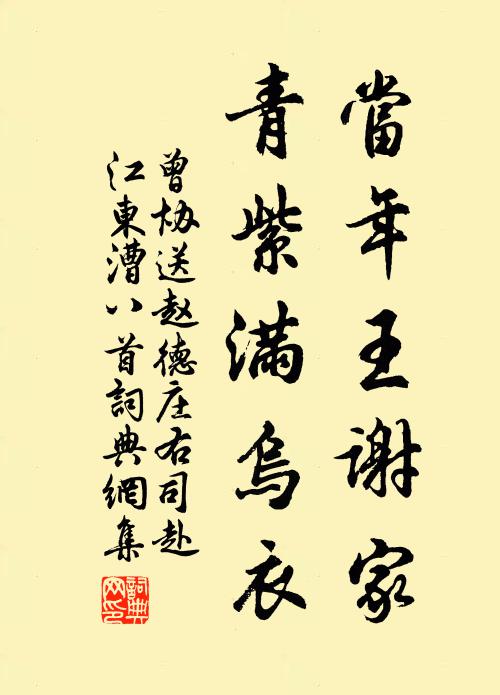 當年王謝家
青紫滿烏衣
曾協送赵德庄右司赴
江東漕八首詞典網集
詞典網印